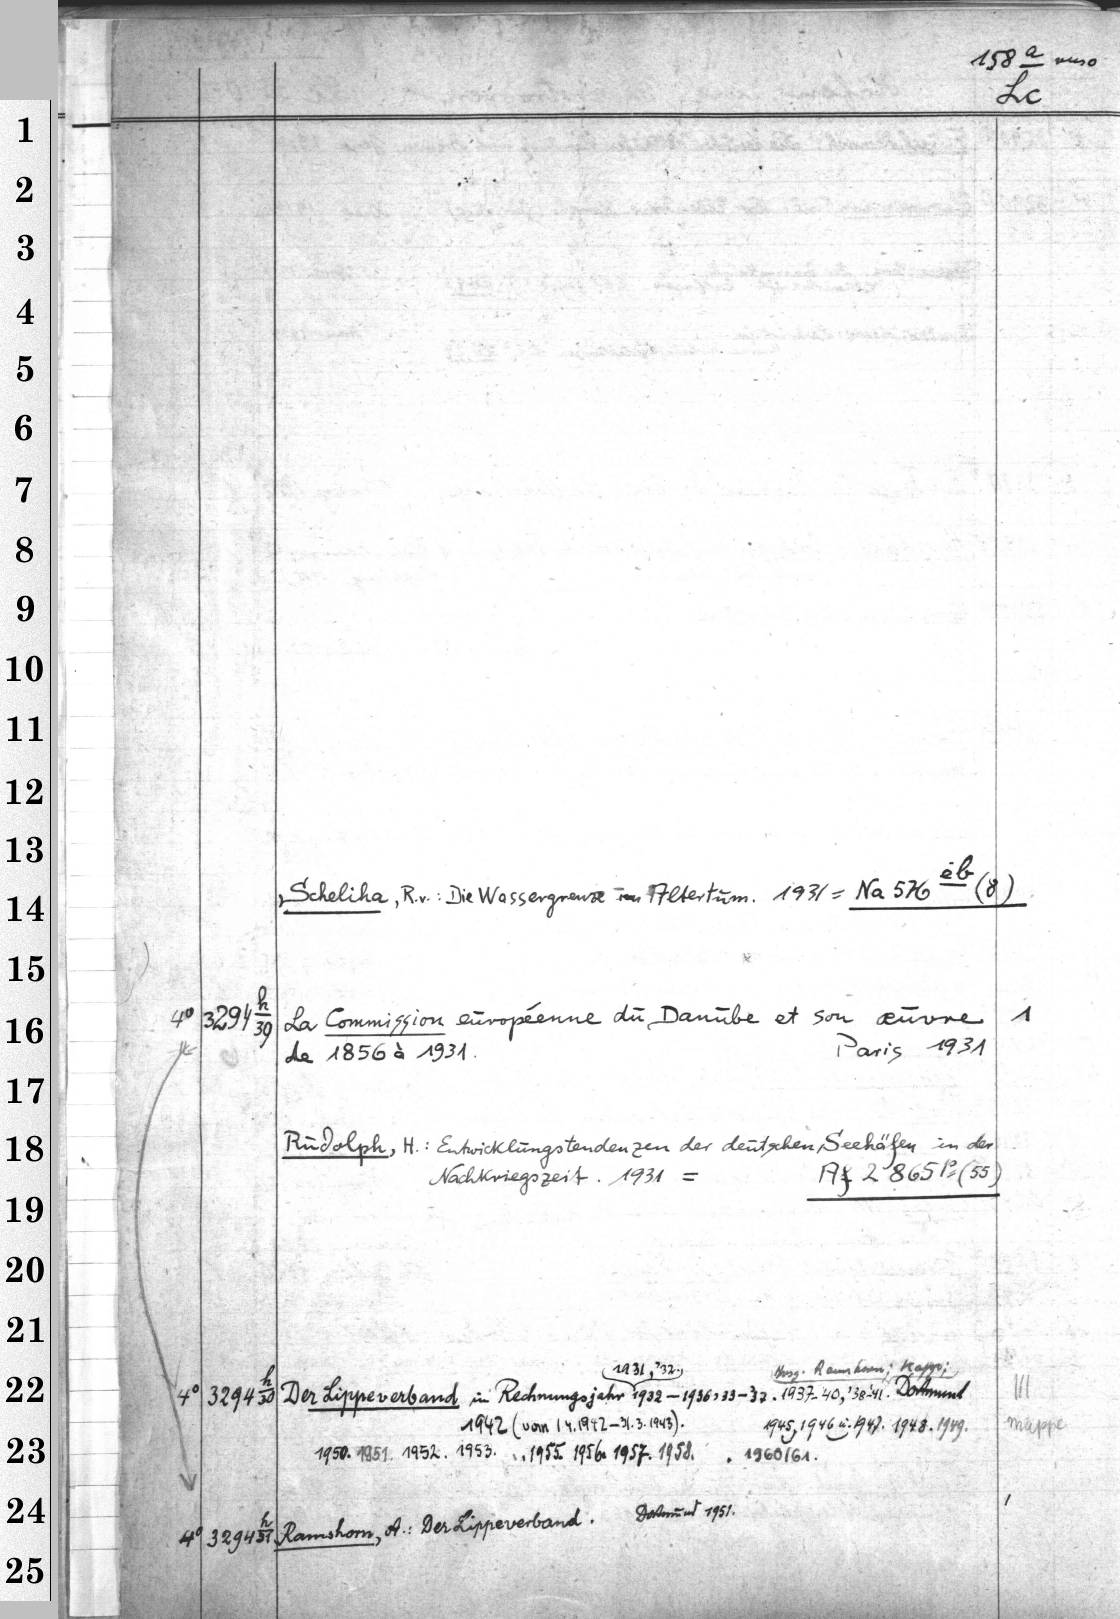 158 a verso
Lc
1
2
3
4
5
6
7
8
9
10
11
12
13
Scheliha, R.v.: Die Wassergrenze im Altertum. 1931 = Na 576 eb (8)
14
15
4° 3294 h/39 La Commission européenne du Danube et son œuvre 1
16
de 1856 à 1931. Paris 1931
17
18 Rudolph, H.: Entwicklungstendenzen der deutschen Seehäfen in der
Nachkriegszeit. 1931 = Af 2865 (55)
19
20
21
1931, '32.
Hrsg. Ramshorn;
22 4° 3294 h/50 Der Lippeverband im Rechnungsjahr 1932–1936, 33–37. 1937-40, '38-'41. Dortmund III
1942 (vom 1.4.1942–31.3.1943). 1945, 1946 u. 1947. 1948. 1949. Mappe
23 1950. 1951. 1952. 1953. 1955. 1956. 1957. 1958. 1960/61.
24
4° 3294 h/51 Ramshorn, A.: Der Lippeverband. Dortmund 1951.
25